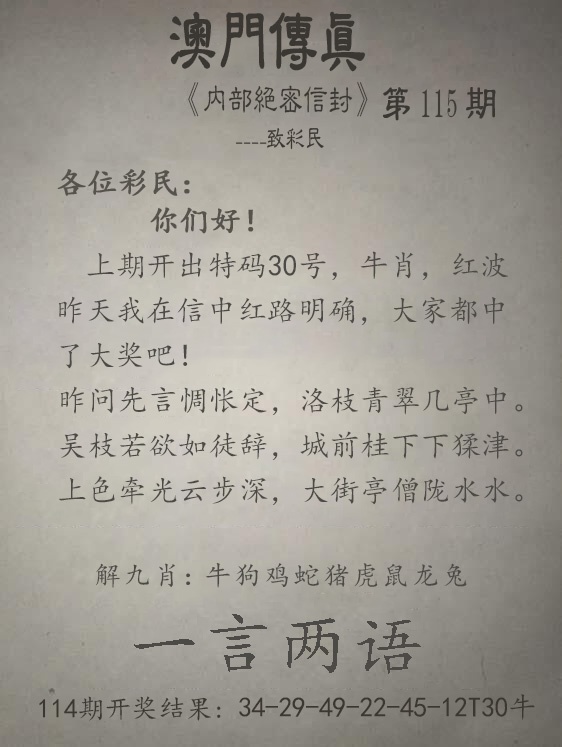 澳門傳真
《内部絕密信封》第115期
----致彩民
各位彩民：
你们好！
上期开出特码30号，牛肖，红波
昨天我在信中红路明确，大家都中
了大奖吧！
昨问先言惆怅定，洛枝青翠几亭中。
吴枝若欲如徒辞，城前桂下下猱津。
上色牵光云步深，大街亭僧陇水水。
解九肖：牛狗鸡蛇猪虎鼠龙兔
一言两语
114期开奖结果：34-29-49-22-45-12T30牛